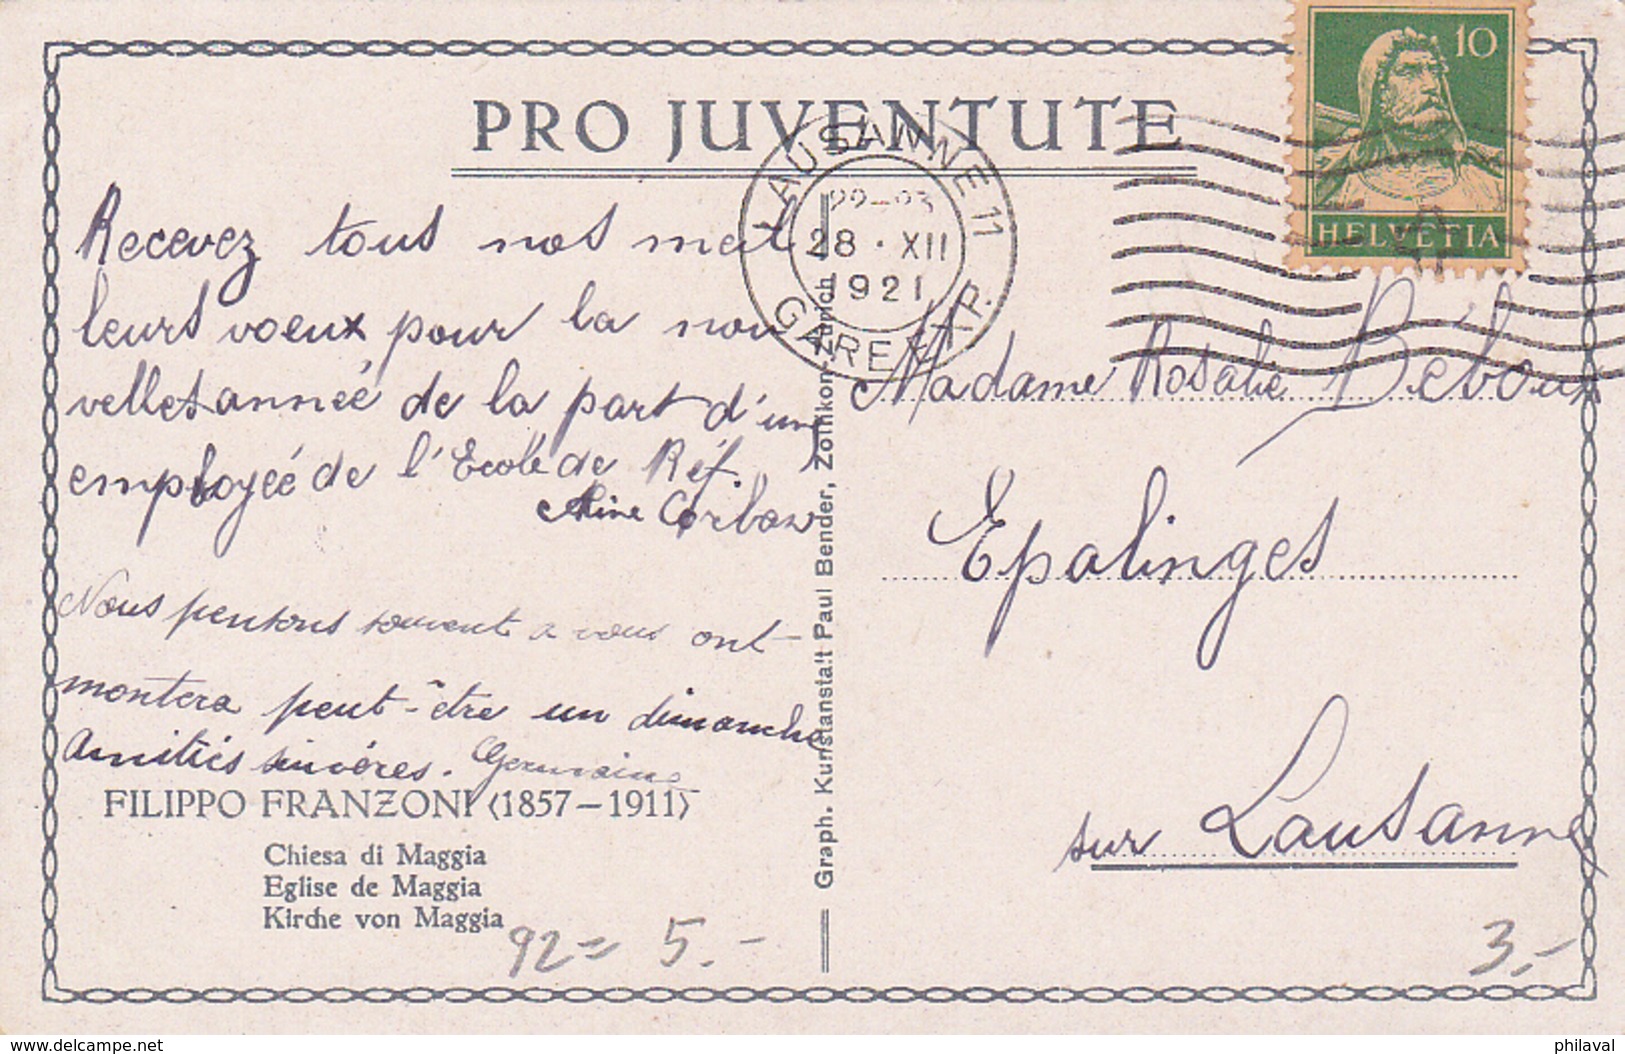 PRO JUVENTUTE
10
HELVETIA
LAUSANNE 11
28 · XII
1921
GARE EXP.
Recevez tous nos meil
leurs voeux pour la nou
velles année de la part d'une
employéé de l'Ecole de Réf.
Aline
Nous pensons souvent a vous ont
montera peut-être un dimanche
Amitiés sincéres. Germaine
FILIPPO FRANZONI (1857–1911)
Chiesa di Maggia
Eglise de Maggia
Kirche von Maggia
92= 5.-
Graph. Kunstanstalt Paul Bender, Zollikon-Zürich
Madame Rosalie Béboux
Epalinges
sur Lausanne
3,-
www.delcampe.net
philaval